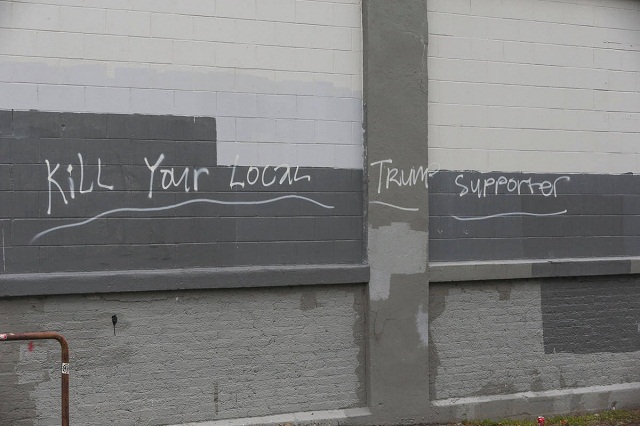 Kill Your Local Trump Supporter